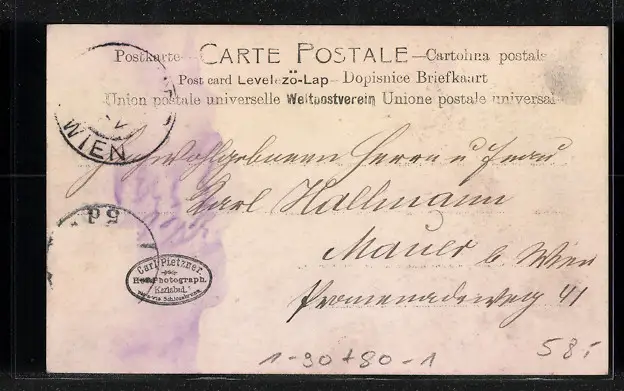 Postkarte — CARTE POSTALE — Cartolina postale
Post card Levelező-Lap — Dopisnice Briefkaart
Union postale universelle Weltpostverein Unione postale universal
WIEN
Hochwohlgeboren Herrn u Frau
Karl Hallmann
Mauer b Wien
Promenadeweg 41
Carl Pietzner
Hof-Photograph.
Karlsbad.
1-90+80-1
58.-